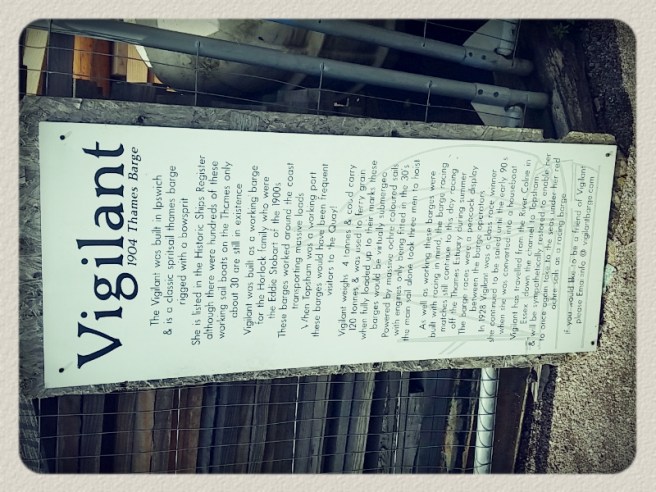 Vigilant
1904 Thames Barge
The Vigilant was built in Ipswich
& is a classic spritsail thames barge
rigged with a bowsprit
She is listed in the Historic Ships Register
although there were hundreds of these
working sail boats on the Thames only
about 30 are still in existence
Vigilant was built as a working barge
for the Horlock family who were
the Eddie Stobart of the 1900s
These barges worked around the coast
transporting massive loads
When Topsham was a working port
these barges would have been frequent
visitors to the Quay!
Vigilant weighs 4 tonnes & could carry
120 tonnes & was used to ferry grain
when fully loaded up to their marks these
barges would be virtually submerged.
Powered by massive ochre coloured sails
with engines only being fitted in the 30's
the main sail alone took three men to hoist
As well as working these barges were
built with racing in mind, the barge racing
matches still continue to this day racing
off the Thames Estuary during summer
The barge races were a peacock display
between the different operators
In 1928 Vigilant was a class race winner
she continued to be sailed until the early 90s
when she was converted into a houseboat
Vigilant has travelled from the River Colne in
Essex, down the channel to Topsham
& will be sympathetically restored to enable her
to once again sail the under her red
ochre sails as a racing barge
if you would like to be a friend of Vigilant
please Email info @ vigilantbarge.com